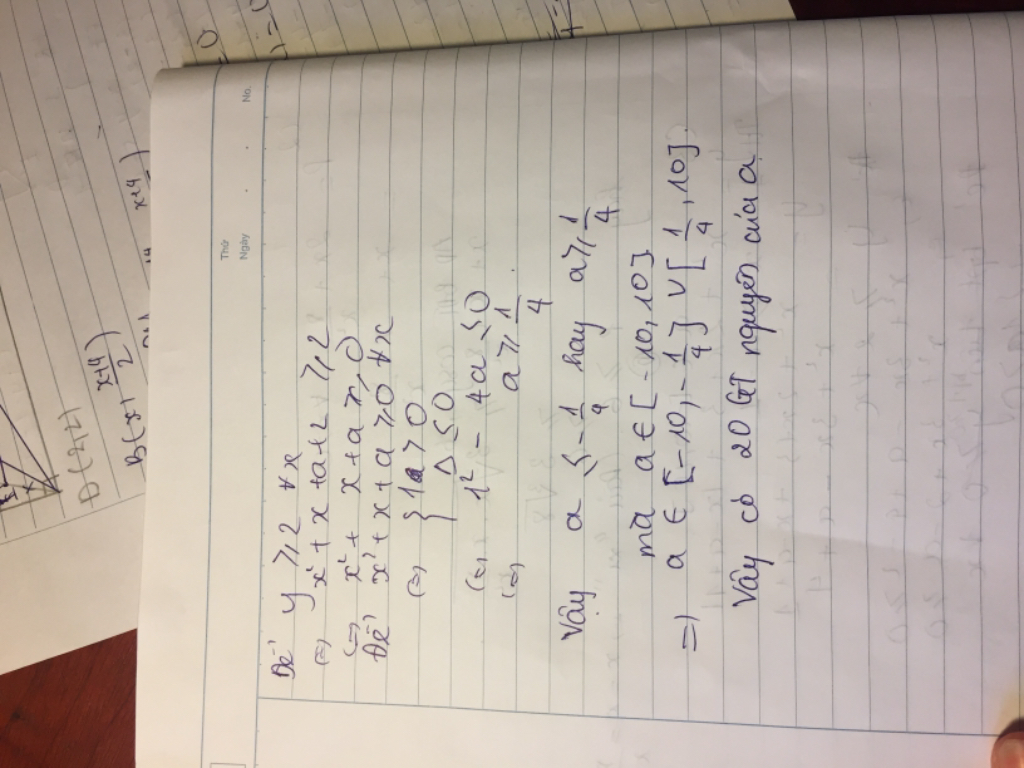 No.
Thứ
Ngày
Để y ⩾ 2 ∀x
(=) x² + x + a + 2 ⩾ 2
(=) x² + x + a ⩾ 0
Để x² + x + a ⩾ 0 ∀x
(=) { 1 > 0
Δ ≤ 0
(=) 1² - 4a ≤ 0
(=) a ⩾ 1/4
Vậy a ≤ -1/4 hay a ⩾ 1/4
mà a ∈ [-10, 10]
=) a ∈ [-10, -1/4] ∨ [1/4, 10].
Vậy có 20 GT nguyên của a.
D(2;2)
B(x; x+4/2)
x+4